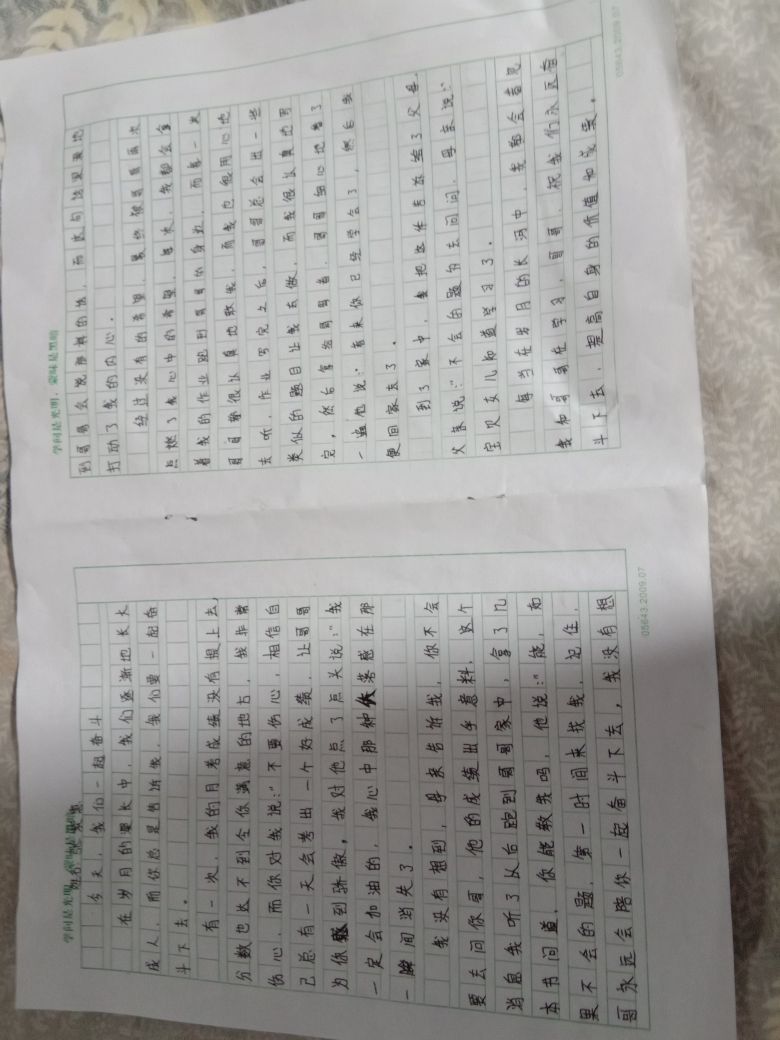 学问是光明，蒙昧是黑暗
今天，我们一起奋斗
在岁月的漫长中，我们逐渐地长大
成人，而你总是告诉我，我们要一起奋
斗下去。
有一次，我的月考成绩没有提上去，
分数也达不到令你满意的地步，我非常
伤心，而你对我说：“不要伤心，相信自
己总有一天会考出一个好成绩，让哥哥
为你感到骄傲。我对他点了点头说：“我
一定会加油的，我心中那种失落感在那
一瞬间消失了。
我没有想到，母亲告诉我，你不会
要去问你哥，他的成绩出乎意料，这个
消息我听了以后跑到哥哥家中，拿了几
本书问道，你能教我吗，他说：“能，如
果不会的题，第一时间来找我，记住，
哥永远会陪你一起奋斗下去，我没有想
05643.2009.07
学问是光明，蒙昧是黑暗
到哥哥会说那样的话，而这句话深深地
打动了我的内心。
经过没有的希望，最终被哥哥再次
点燃了我心中的希望，每次，我都会拿
着我的作业跑到哥哥的身边，而每一次
哥哥都很认真地教我，而我也很用心地
去听，作业写完之后，哥哥总会出一些
类似的题目让我去做，而我很认真地写
完，然后拿给哥哥看，哥哥细心地看了
一遍他说：“看来你已经学会了，然后我
便回家去了。
到了家中，我把这件告诉给了父母，
父亲说：“不会的题多去问问，母亲说：“
宝贝女儿知道学习了。
每当在岁月的长河中，我都会看见
我和哥哥在学习，哥哥，祝我们永远奋
斗下去，提高自身的价值和成果。
05643.2009.07